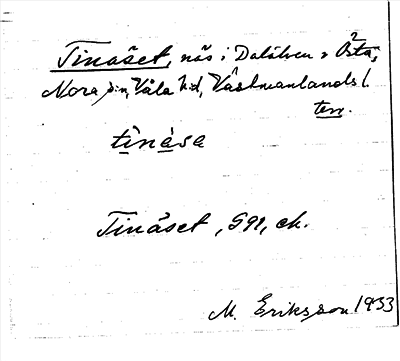 Tinäset, näs i Dalälven v Östa,
Nora sn, Våla hd, Västmanlands l.
terr.
tìnä̀sa
Tinäset, S91, ek.
M. Eriksson 1933